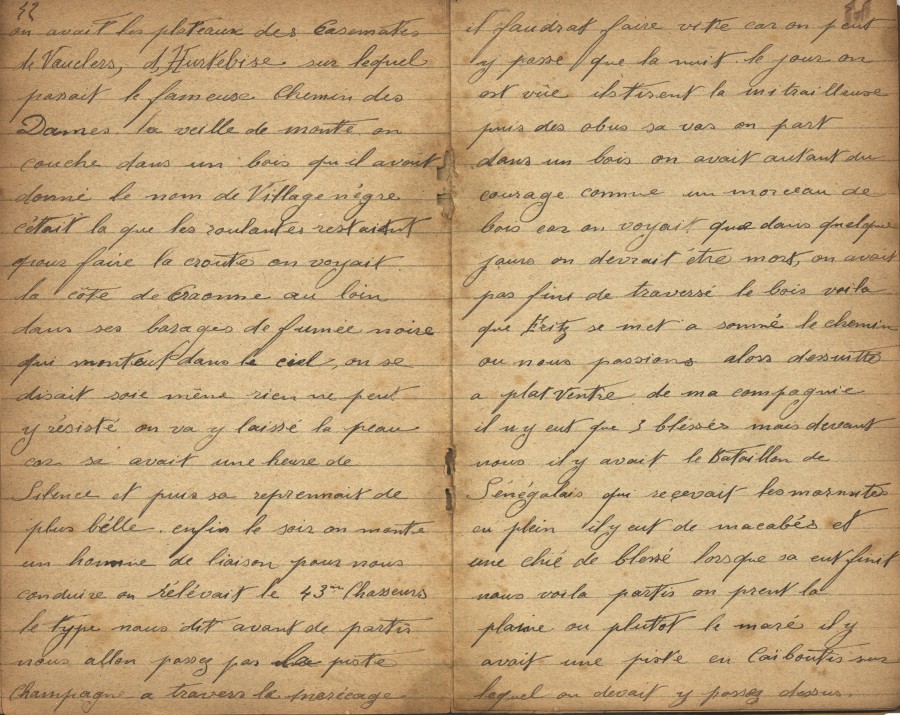 42
on avait les plateaux des Casemates
de Vauclers, d'Hurtebise sur lequel
passait le fameux Chemin des
Dames la veille de monte on
couche dans un bois qu'il avait
donné le nom de Village nègre
c'était la que les roulantes restaient
pour faire la croute on voyait
la côte de Craonne au loin
dans ses barages de fumée noire
qui montent dans le ciel, on se
disait soie même rien ne peut
y résisté on va y laissé la peau
car sa avait une heure de
Silence et puis sa reprennait de
plus bélle. enfin le soir on monte
un homme de liaison pour nous
conduire on rélévait le 43me Chasseurs
le type nous dit avant de partir
nous allon passez par la piste
Champagne a travers le marécage
il faudrat faire vitre car on peut
y passé que la nuit. le jour on
est vue ils tirent la mitrailleuse
puis des obus sa vas on part
dans un bois on avait autant du
courage comme un morceau de
bois car on voyait que dans quelque
jours on devrait être mort, on avait
pas fini de traversé le bois voila
que Fritz se met a sonné le chemin
ou nous passions alors dessuitte
a plat ventre de ma compagnie
il n'y eut que 3 bléssés mais devant
nous il y avait le Bataillon de
Sénégalais qui reçevait les marmites
en plein il y eut de macabés et
une chié de bléssé lorsque sa eut finit
nous voila partis on prent la
plaine ou plutot le maré il y
avait une piste en Caiboutis sur
lequel on devait y passez dessus.